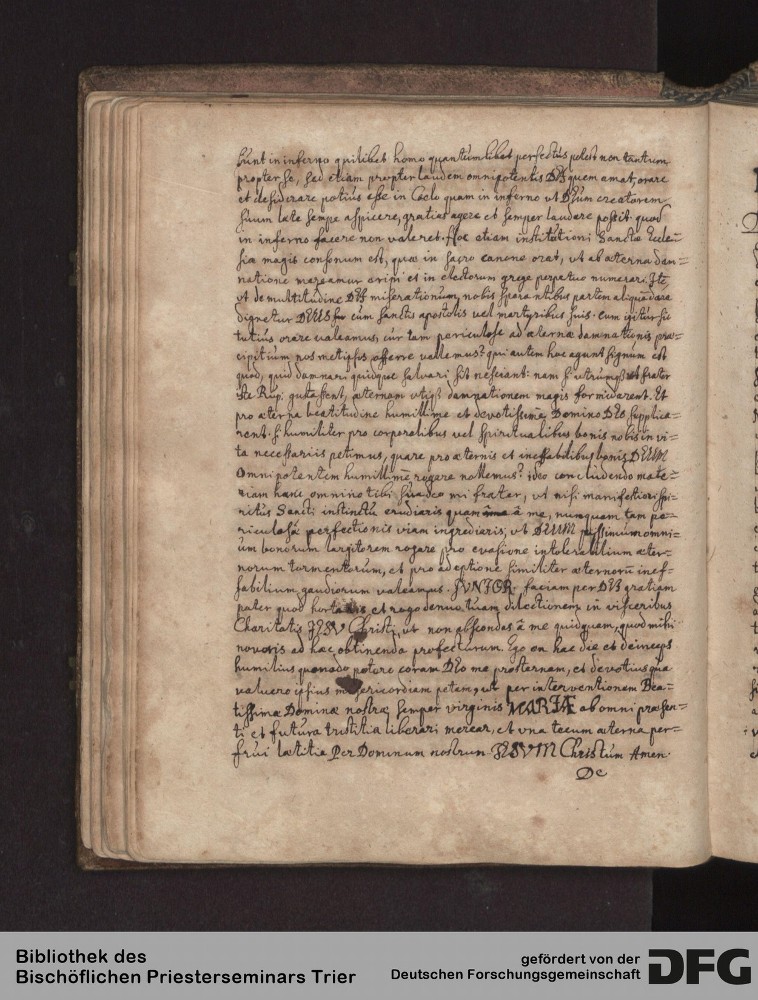 sunt in inferno quilibet homo quantumlibet perfectus potest non tantum
propter se, sed etiam propter laudem omnipotentis DEI quem amat, orare
et desiderare potius esse in Coelo quam in inferno ut DEum creatorem
suum laete semper aspicere, gratias agere et semper laudare possit quod
in inferno facere non valeret. Hoc etiam institutioni Sanctae Eccle=
siae magis consonum est, quae in sacro canone orat, ut ab aeterna dam=
natione mereamur eripi et in electorum grege perpetuo numerari. Ite
ut de multitudine DEI miserationum, nobis sperantibus partem aliquam dare
dignetur DEUS cum sanctis apostolis vel martyribus suis. cum igitur sic
tutius orare valeamus, cur tam periculose ad aeternae damnationis prae=
cipitium nos metipsos offerre vellemus? qui autem hoc agunt signum est
quod, quid damnari quidque salvari sit nesciant: nam si utrumque frater
iste Rup: gustasset, aeternam utique damnationem magis formidarent. Et
pro aeterna beatitudine humillime et devotissime Domino DEO supplica=
rent. si humiliter pro corporalibus vel spiritualibus bonis nobis in vi=
ta necessariis petimus, quare pro aeternis et ineffabilibus bonis DEUM
omnipotentem humillime rogare nollemus? ideo concludendo mate=
riam hanc omnino tibi suadeo mi frater, ut nisi manifestiori Spi=
ritus Sancti instinctu erudiaris quam a me, nunquam tam pe=
riculosa perfectionis viam ingrediaris, ut DEUM piissimum omni=
um bonorum largitorem rogare pro evasione intolerabilium aeter=
norum tormentorum, et pro adeptione similiter aeternorum inef=
fabilium gaudiorum valeamus. JUNIOR. faciam per DEI gratiam
pater quod hortaris et rogo denuo tuam dilectionem in visceribus
Charitatis JESV Christi, ut non abscondas a me quidquam, quod mihi
noveris ad hac obtinenda profecturum. Ego en hac die et deinceps
humilius quomodo potero coram DEO me prosternam, et devotius qua
valuero ipsius misericordiam petam, ut per interventionem Bea=
tissimae Dominae nostrae semper virginis MARIAE ab omni praesen=
ti et futura tristitia liberari merear, et una tecum aeterna per=
frui laetitia Per Dominum nostrum JESVM Christum Amen.
De
Bibliothek des
Bischöflichen Priesterseminars Trier
gefördert von der
Deutschen Forschungsgemeinschaft
DFG